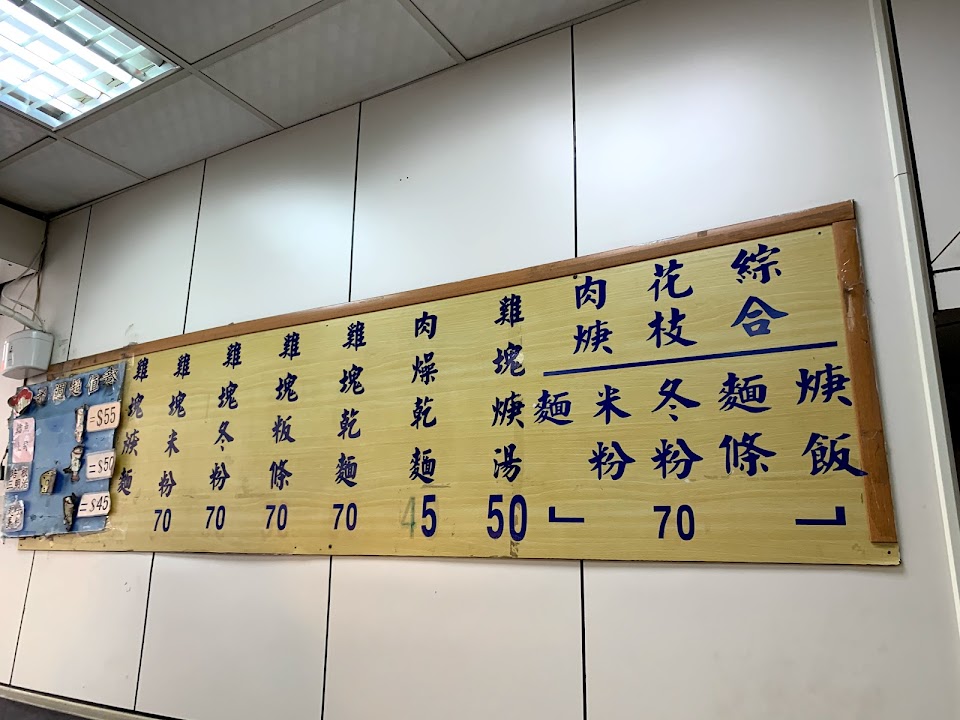 綜合
花枝
肉焿
焿飯
麵條
冬粉
米粉
麵
70
雞塊焿湯
50
肉燥乾麵
45
雞塊乾麵
70
雞塊粄條
70
雞塊冬粉
70
雞塊米粉
70
雞塊焿麵
=$55
=$50
=$45